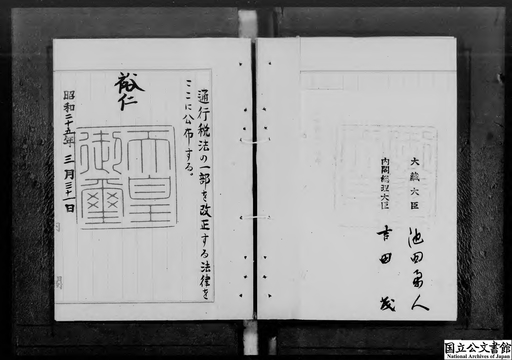 通行税法の一部を改正する法律を
ここに公布する。
裕仁
天皇
御璽
昭和二十五年三月三十一日
大蔵大臣 池田勇人
内閣総理大臣 吉田茂
国立公文書館
National Archives of Japan